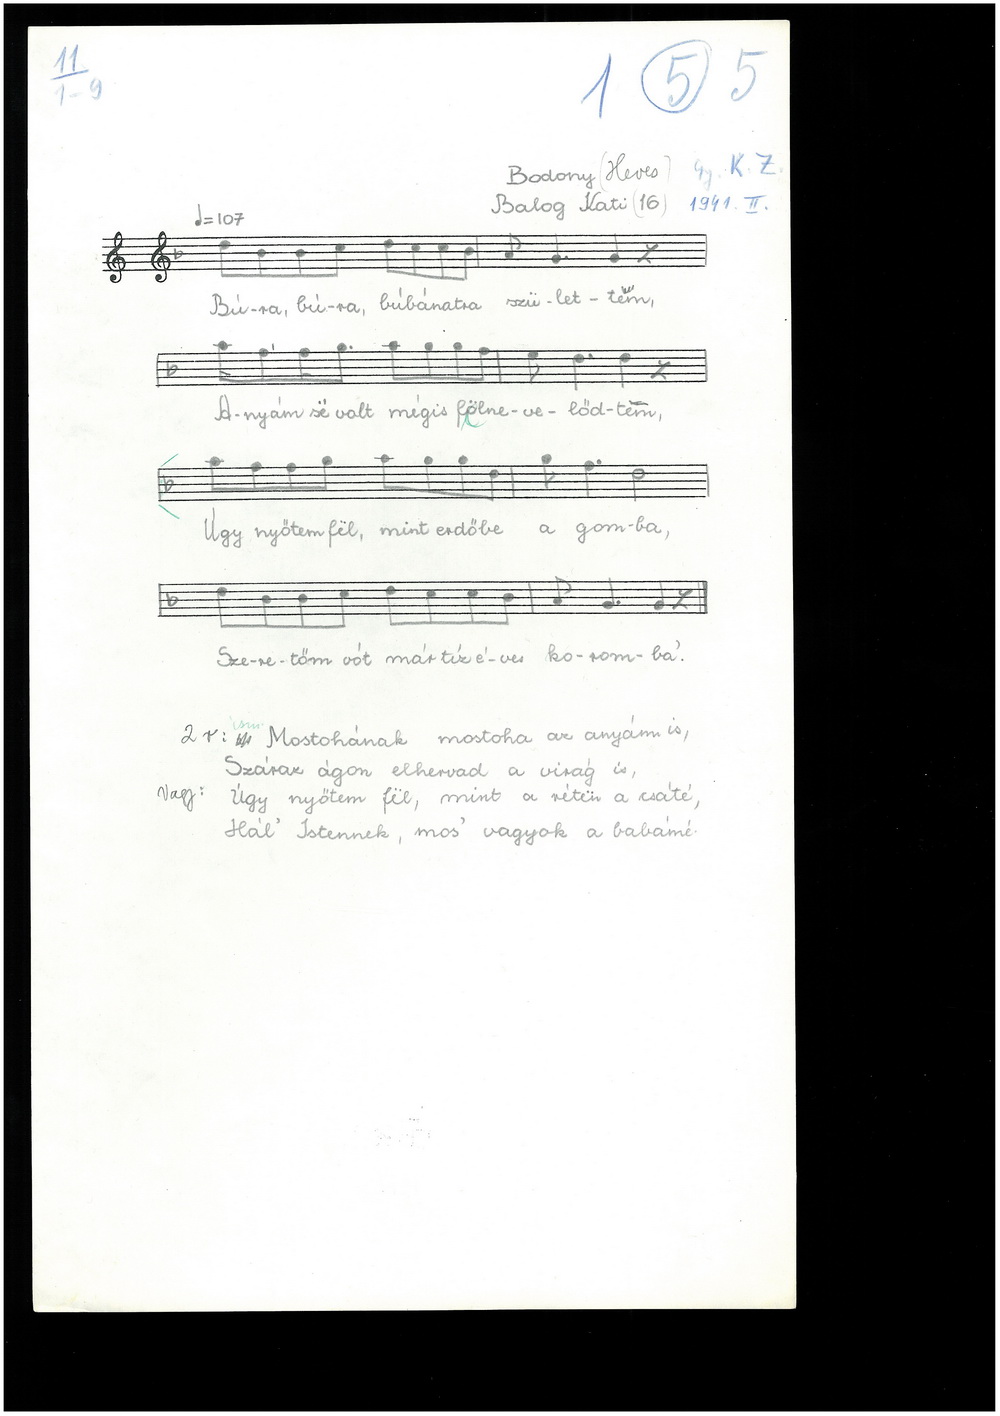 11
1-9
1 5 5
Bodony (Heves) Gy. K. Z.
Balog Kati (16) 1941. II.
♩=107
Bú-ra, bú-ra, búbánatra szü-let-tëm,
A-nyám së volt mégis fölne-ve-lőd-tem,
Úgy nyőtem fël, mint erdőbe a gom-ba,
Sze-re-tőm vót már tíz é-ves ko-rom-ba'.
2 v: Mostohának mostoha az anyám is,
Száraz ágon elhervad a virág is,
Vagy: Úgy nyőtem fël, mint a rétën a csáté,
Hál' Istennek, mos' vagyok a babámé.